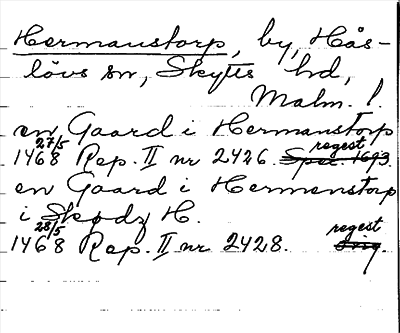 Hermanstorp, by, Hås-
lövs sn, Skytts hd,
Malm. l.
en Gaard i Hermanstorp
1468 27/5 Rep. II nr 2426. Sped. 1693. regest
en Gaard i Hermenstorp
i Skødz H.
1468 28/5 Rep. II nr 2428. Orig. regest